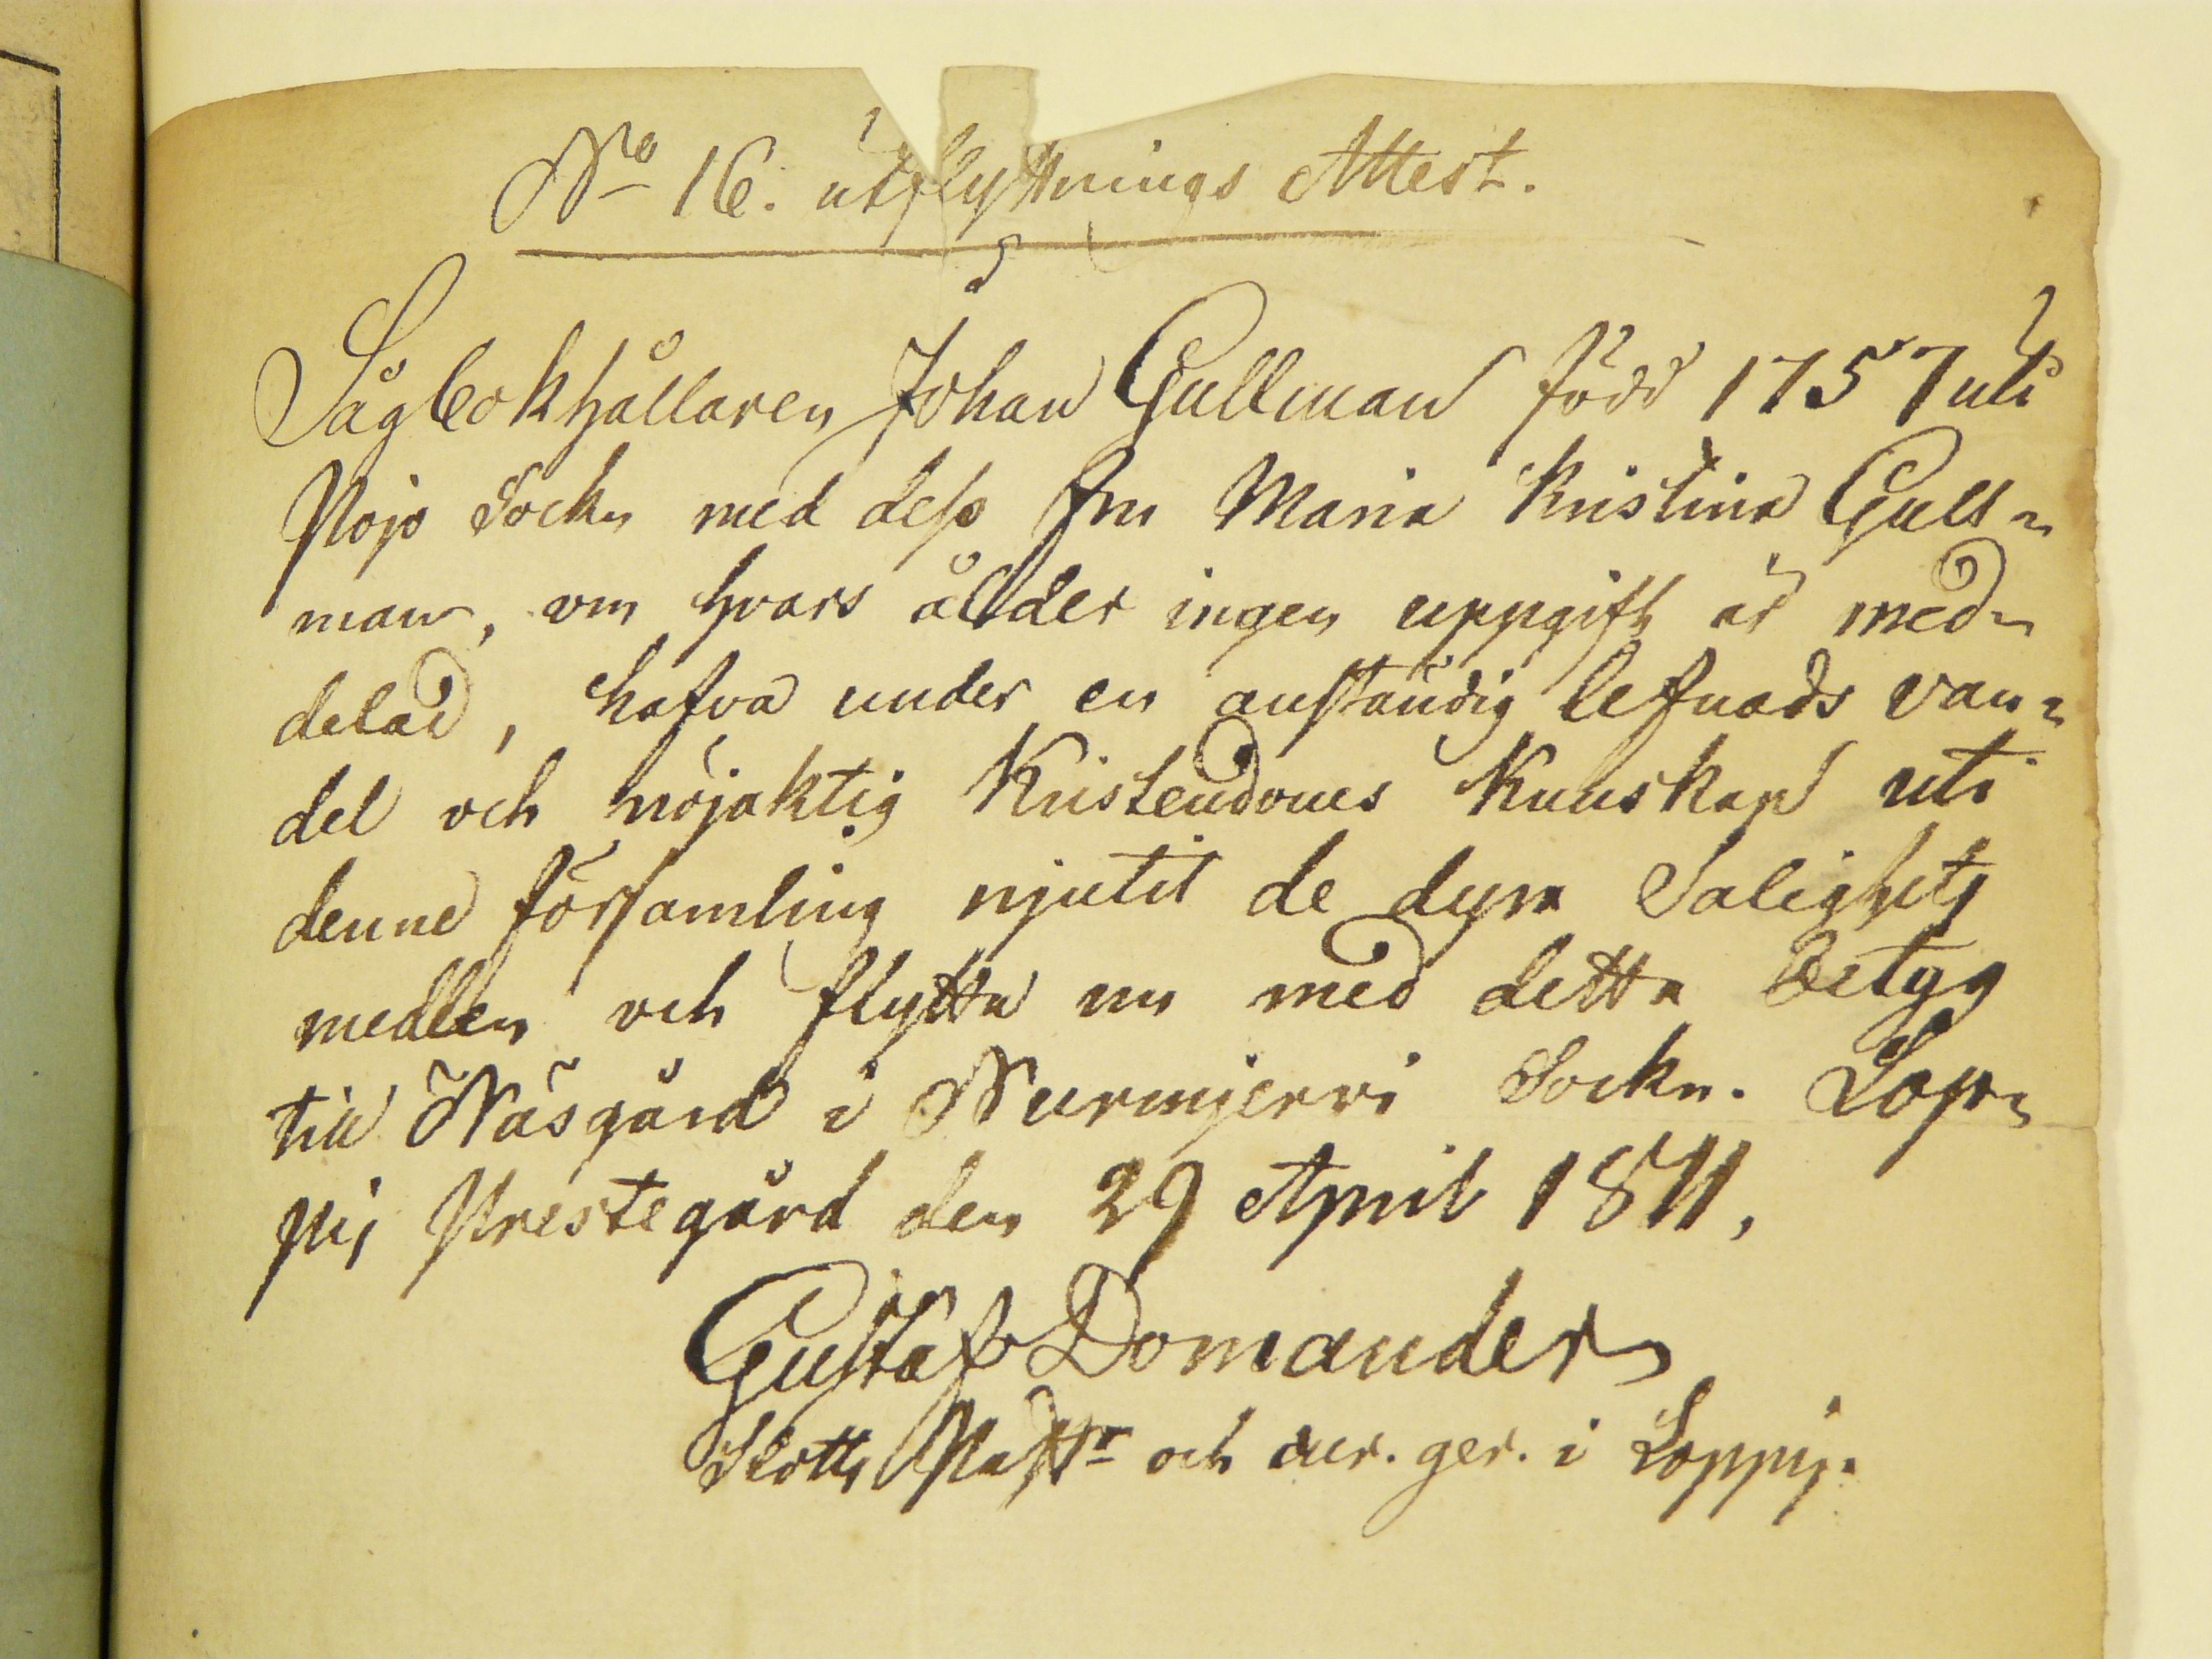 No 16. utflyttnings Attest.
Såg bokhållaren Johan Gullman född 1757 uti
Pojo Sockn med dess Fru Maria Kristina Gull=
man, om hvars ålder ingen uppgift är med=
delad, hafva under en anständig lefnads van=
del och nöjaktig Kristendoms Kunskap uti
denne församling njutit de dyra Salighets
medlen och flytta nu med detta Betyg
till Näsgård i Nurmjervi Sockn. Lop=
pis Prestegård den 29 April 1811.
Gustaf Domander
Slotts Past:r och ger. i Loppis.